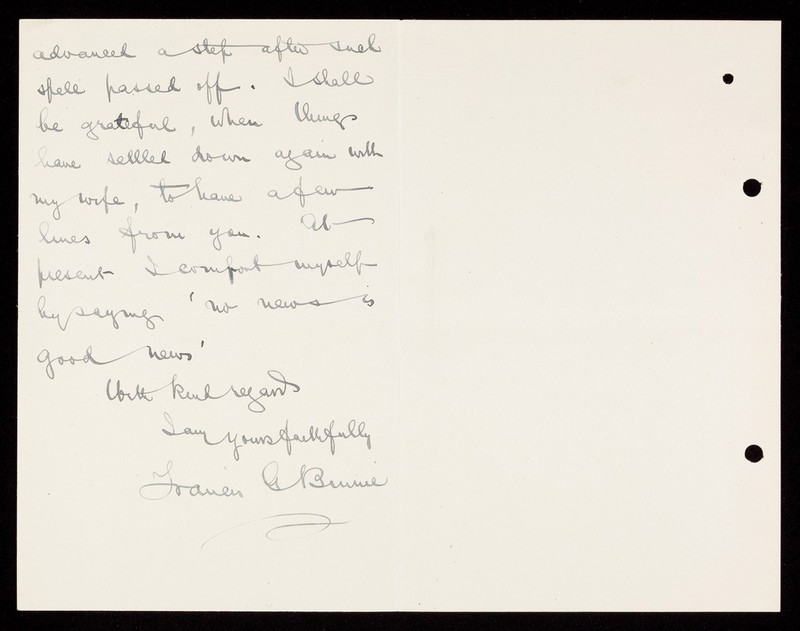 advanced a step after such
spell passed off. I shall
be grateful, when things
have settled down again with
my wife, to have a few
lines from you. At
present I comfort myself
by saying 'no news is
good news'
With kind regards
I am yours faithfully
Francis G Binnie